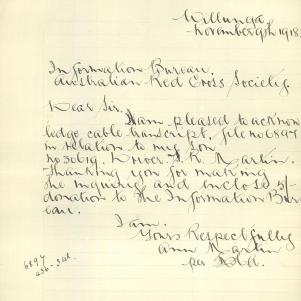 Willunga,
November 9th 1918.
Information Bureau,
Australian Red Cross Society.
Dear Sir.
I am pleased to acknow
ledge cable transcript, file no 6897
in relation to my Son
no 30619. Driver J. R. Martin.
Thanking you for making
the inquiry, and enclose 5/-
donation to the Information Bur
eau.
I am.
Yours Respectfully
Ann Martin
per
6897